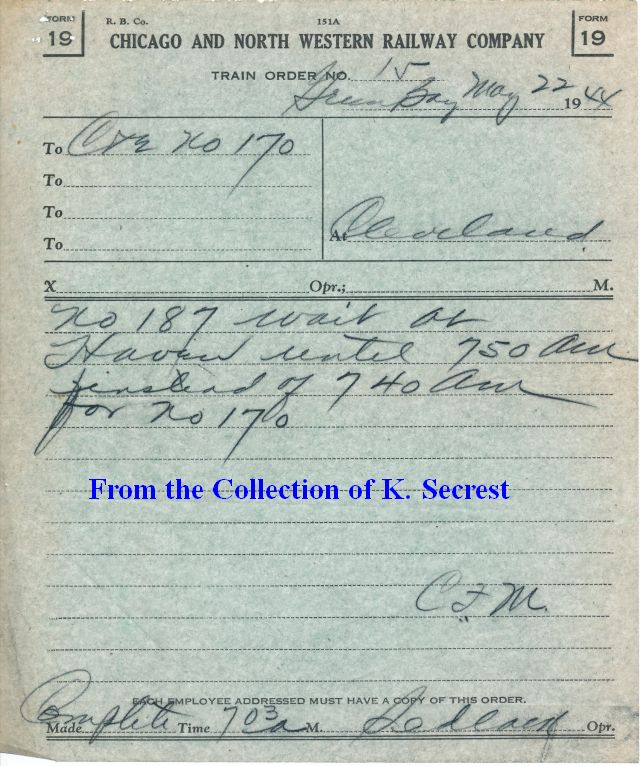 FORM 19 R. B. Co. 151A FORM 19
CHICAGO AND NORTH WESTERN RAILWAY COMPANY
TRAIN ORDER NO. 15
Green Bay May 22 1944
To C&E No 170
To
To
To
At Cleveland
X Opr.; M.
No 187 wait at
Haven until 750 am
instead of 740 am
for No 170
From the Collection of K. Secrest
C F M.
EACH EMPLOYEE ADDRESSED MUST HAVE A COPY OF THIS ORDER.
Made Complete Time 703 a M. Opr.